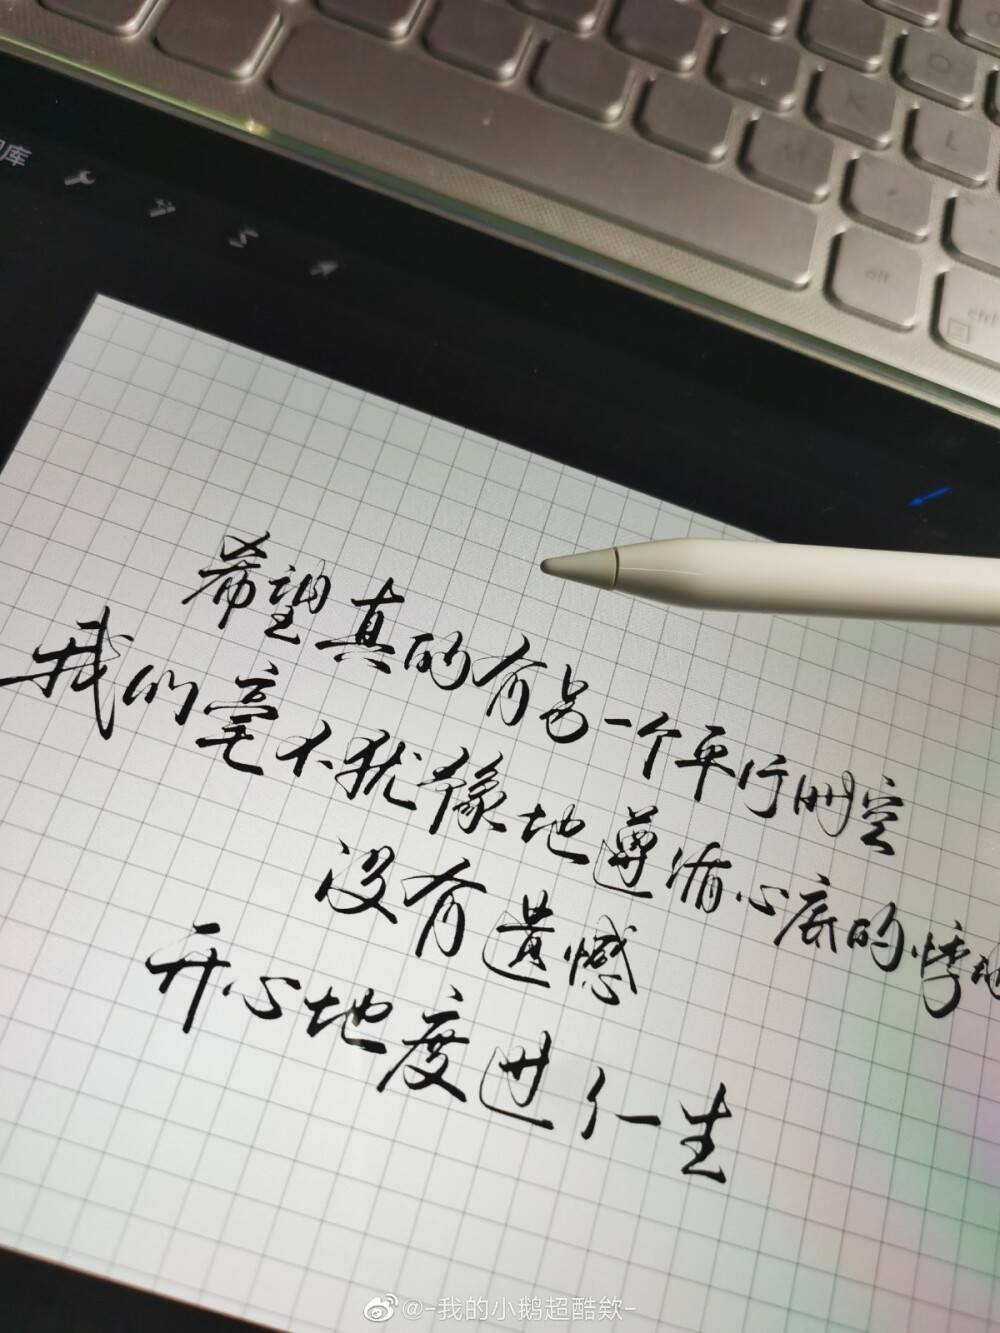 库
O
K
L
M
alt
ctrl
希望真的有另一个平行时空
我们毫不犹豫地遵循心底的悸动
没有遗憾
开心地度过一生
@-我的小鹅超酷欸-